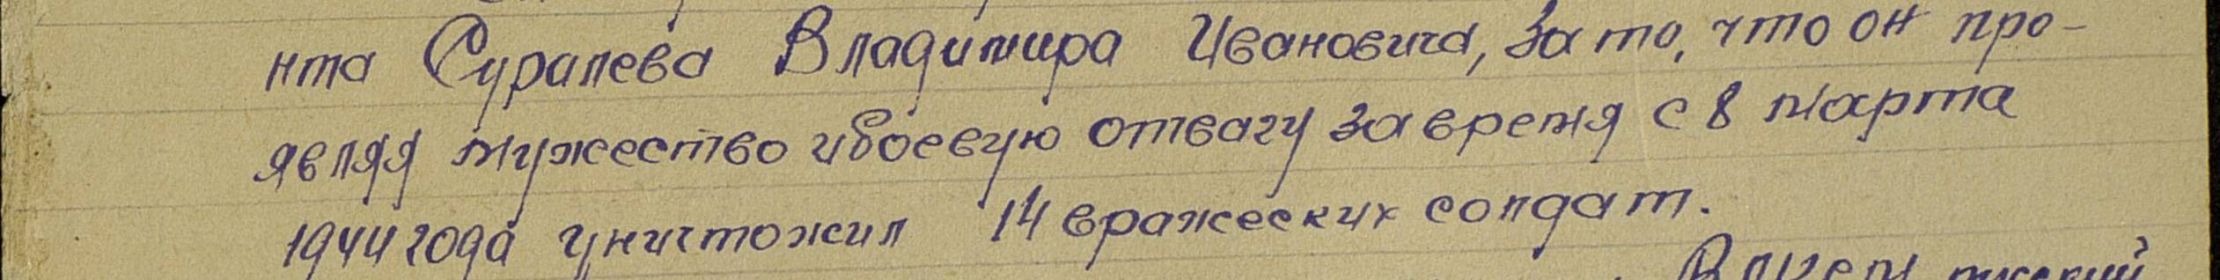 нта Суралева Владимира Ивановича, за то, что он про-
являя мужество и боевую отвагу за время с 8 марта
1944 года уничтожил 14 вражеских солдат.